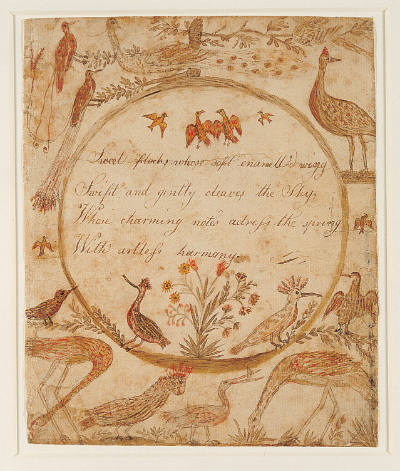 Sweet flocks whose soft enamell'd wing
Swift and gently cleaves the Sky,
Whose charming notes adreſs the spring
With artleſs harmony.